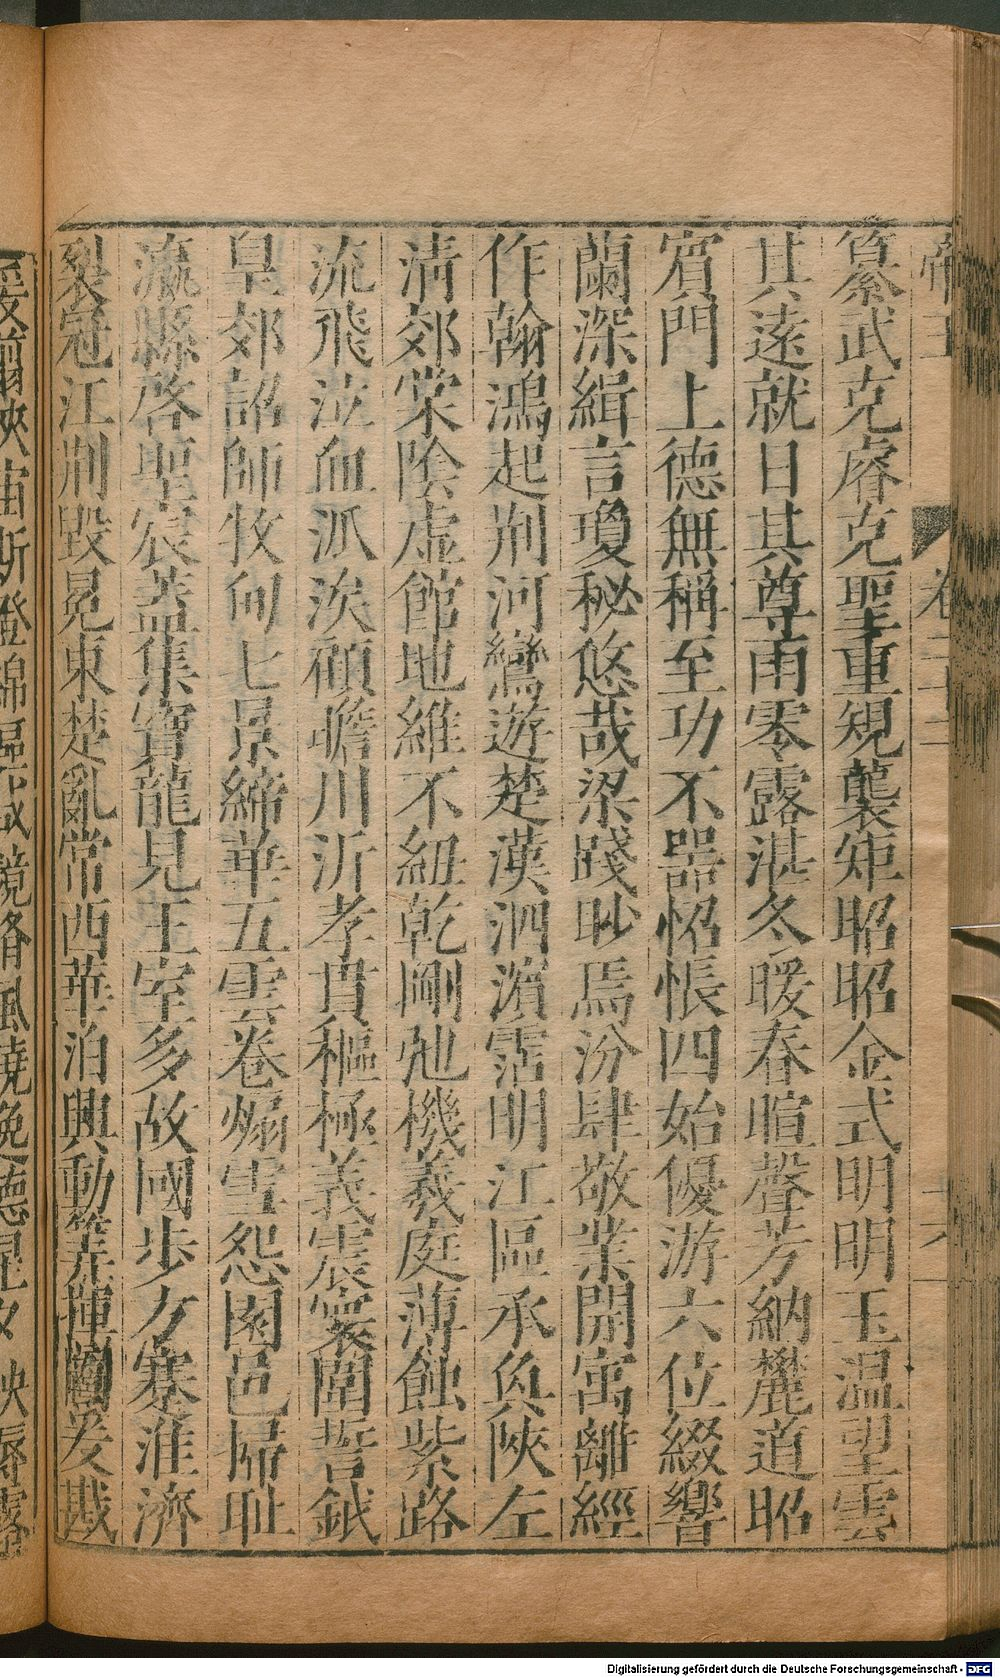 帝王 卷二十三
纂武克睿克聖重規襲矩昭昭金式明明玉温望雲
其遠就日其尊雨零露湛冬暖春暄聲芳納麓道昭
賓門上德無稱至功不器怊悵四始優游六位綴響
蘭深緝言瓊秘悠哉梁踐眇焉汾肆敬業開寓離經
作翰鴻起荆河鸞遊楚漢泗濱霑明江區承奐陜左
清郊棠陰虛館地維不紐乾剛弛機羲庭薄蝕紫路
流飛泣血派涘頎瞻川泝孝貫樞極義震寰圍誓鉞
皇郊詔師牧向七景締華五雲卷煽雪怨園邑掃耻
瀛縣啓聖宸蓋集寶龍見王室多故國步方蹇淮濟
裂冠江荆毀冕東楚亂常西華泊興動筌揮蘭爰戡